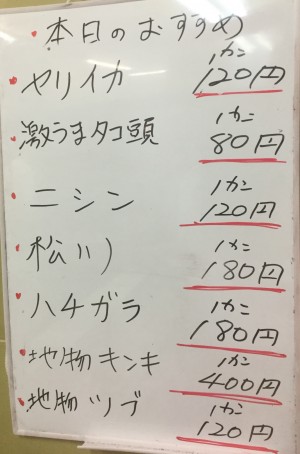 ・本日のおすすめ
・ヤリイカ 1カン 120円
・激うまタコ頭 1カン 80円
・ニシン 1カン 120円
・松川 1カン 180円
・ハチガラ 1カン 180円
・地物キンキ 1カン 400円
・地物ツブ 1カン 120円